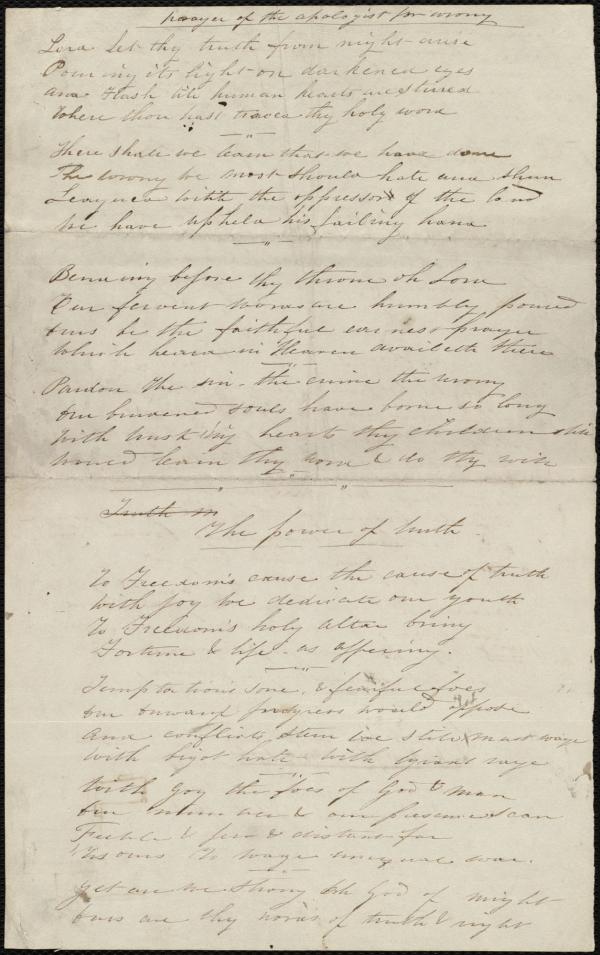 Prayer of the apologist for wrong
Lord let thy truth from night arise
Pouring its light on darkened eyes
And flash till human hearts are stired
Where thou hast traced thy holy word
There shall we learn that we have done
The wrong we most should hate and shun
Leagued with the oppressor of the land
We have upheld his failing hand
Bending before thy throne oh Lord
Our fervent words are humbly poured
Ours be the faithful earnest prayer
Which heard in Heaven availeth there
Pardon the sin - the crime the wrong
Our burdened souls have borne so long
With trusting hearts thy children still
Would learn thy word & do thy will
Truth in
The power of truth
To Freedom's cause the cause of truth
With joy we dedicate our youth
To Freedom's holy altar bring
Fortune & life - as offering.
Temptations sore, & fearful foes
Our onward progress would oppose
And conflicts stern we still must wage
With bigot hate - with tyrant rage
With joy the foes of God & man
Our number & our presence scan
Feeble & few & distant far
'Tis ours to wage unequal war.
Yet are we strong Oh God of might
Ours are thy words of truth & right